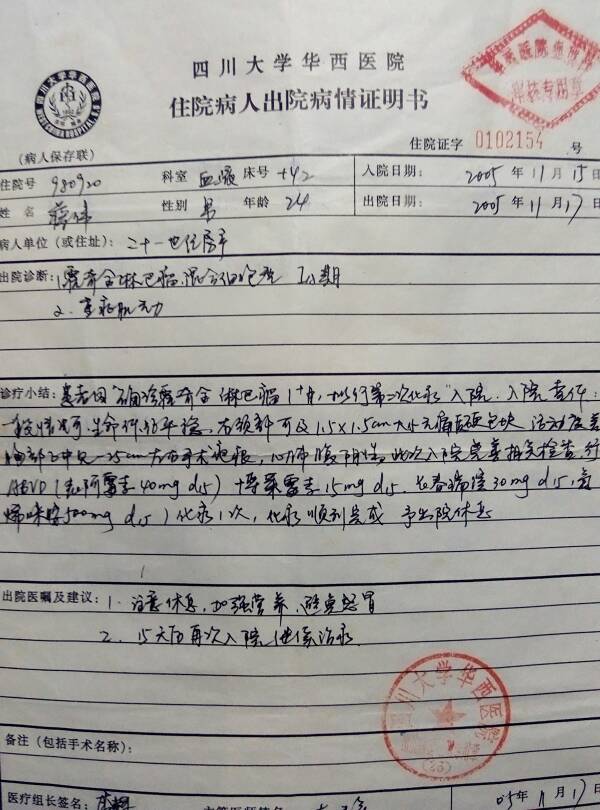 四川大学华西医院
住院病人出院病情证明书
住院证字 0102154 号
(病人保存联)
住院号 980920 科室 血液 床号 +42 入院日期: 2005年11月15日
姓名 性别 男 年龄 24 出院日期: 2005年11月17日
病人单位(或住址):
出院诊断: 1.霍奇金淋巴瘤,混合细胞型
2.重症肌无力
诊疗小结: 患者因"确诊霍奇金淋巴瘤1+月,拟行第二次化疗"入院.入院查体:
一般情况可,生命体征平稳,右颈部可及1.5×1.5cm大小无痛性硬包块
胸部正中见一25cm左右手术疤痕,心肺腹阴性.此次入院完善相关检查,行
ABVD(表阿霉素40mg d15 +博莱霉素15mg d15,长春瑞滨30mg d15,氮
烯咪胺500mg d15)化疗1次,化疗顺利完成 予出院休息
出院医嘱及建议: 1.注意休息,加强营养,避免感冒
2.15天后再次入院继续治疗
四川大学华西医院
备注(包括手术名称):
医疗组长签名: 05年11月17日